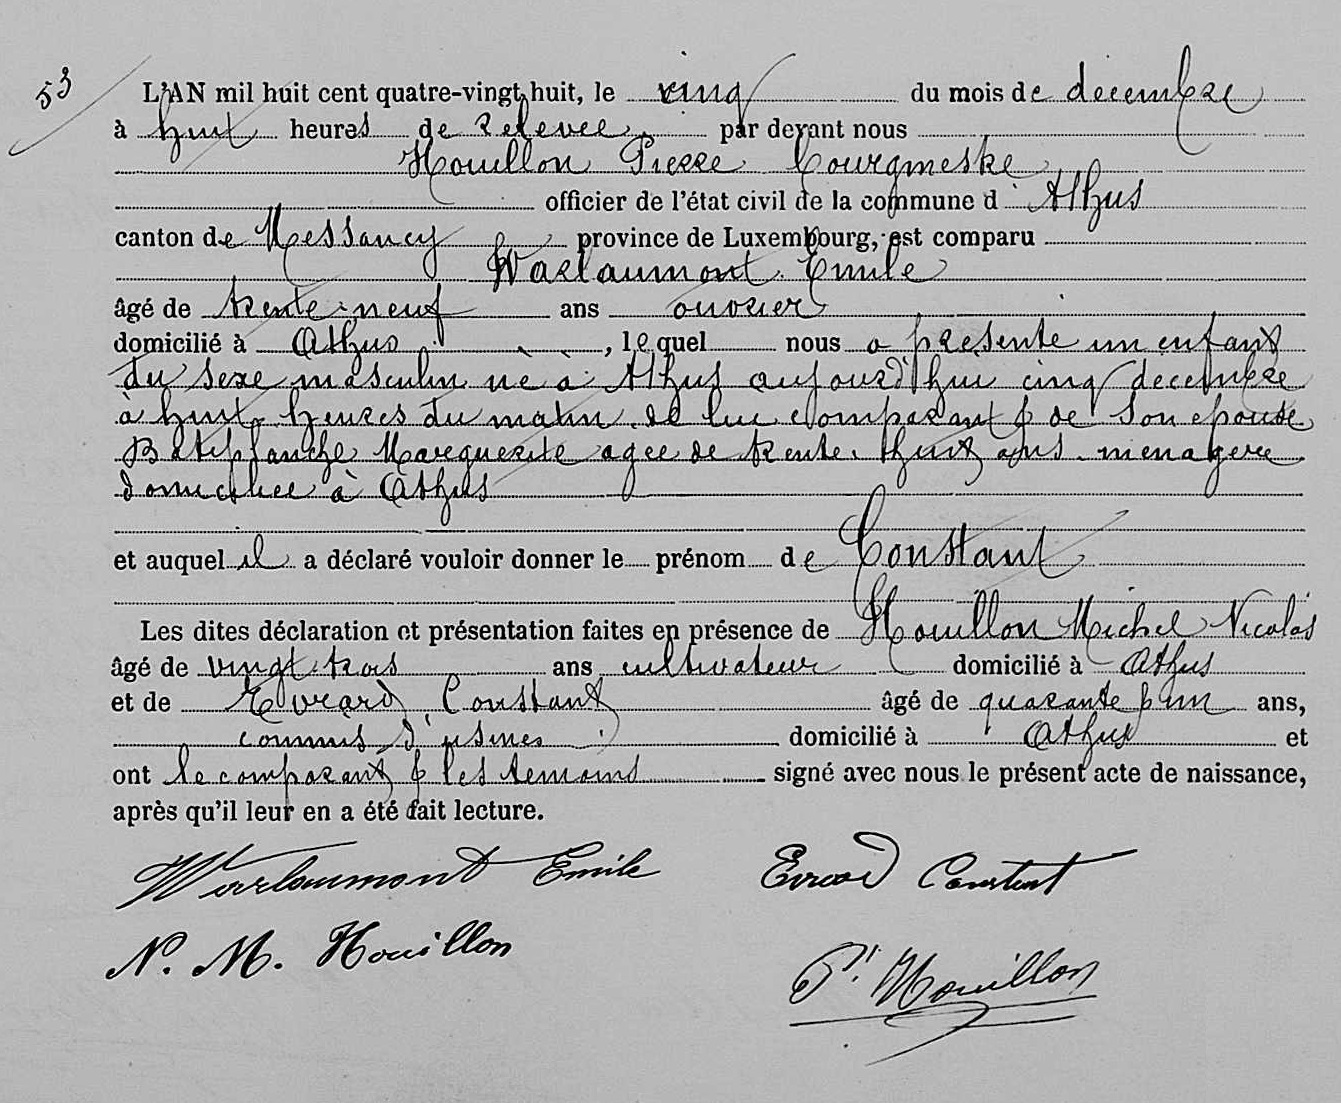 53
L'AN mil huit cent quatre-vingt huit, le cinq du mois de decembre
à huit heures de relevee par devant nous
Houillon Pierre bourgmestre
officier de l'état civil de la commune d'Athus
canton de Messancy province de Luxembourg, est comparu
Warlaumont Emile
âgé de trente-neuf ans ouvrier
domicilié à Athus, lequel nous a présenté un enfant
du sexe masculin né à Athus aujourd'hui cinq decembre
à huit heures du matin de lui comparant & de son epouse
Marguerite agee de trente huit ans menagere
domiciliee à Athus
et auquel il a déclaré vouloir donner le prénom de Constant
Les dites déclaration et présentation faites en présence de Houillon Michel Nicolas
âgé de vingt trois ans cultivateur domicilié à Athus
et de Evrard Constant âgé de quarante & un ans,
commis d'usines domicilié à Athus et
ont le comparant & les temoins signé avec nous le présent acte de naissance,
après qu'il leur en a été fait lecture.
Warlaumont Emile Evrard Constant
N. M. Houillon
P. Houillon